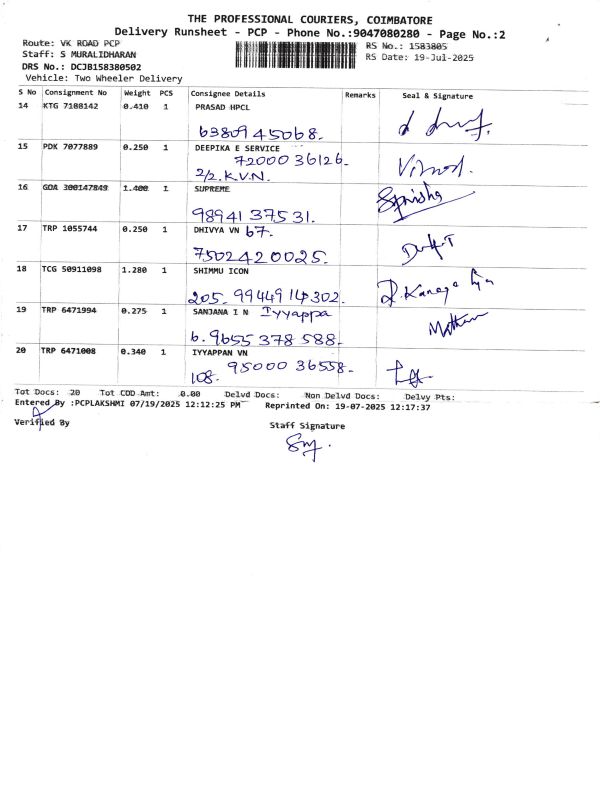 THE PROFESSIONAL COURIERS, COIMBATORE
Delivery Runsheet - PCP - Phone No.:9047080280 - Page No.:2
Route: VK ROAD PCP RS No.: 1583805
Staff: S MURALIDHARAN RS Date: 19-Jul-2025
DRS No.: DCJB158380502
Vehicle: Two Wheeler Delivery
S No Consignment No Weight PCS Consignee Details Remarks Seal & Signature
14 KTG 7108142 0.410 1 PRASAD HPCL
6380945068.
15 PDK 7077889 0.250 1 DEEPIKA E SERVICE
7200036126.
2/2. K.V.N. Vinod.
16 GOA 300147849 1.400 1 SUPREME
9894137531.
17 TRP 1055744 0.250 1 DHIVYA VN 67.
7502420025.
18 TCG 50911098 1.280 1 SHIMMU ICON
205. 9944914302.
19 TRP 6471994 0.275 1 SANJANA I N Iyyappa
6. 9655378588.
20 TRP 6471008 0.340 1 IYYAPPAN VN
108. 9500036558.
Tot Docs: 20 Tot COD Amt: 0.00 Delvd Docs: Non Delvd Docs: Delvy Pts:
Entered By :PCPLAKSHMI 07/19/2025 12:12:25 PM Reprinted On: 19-07-2025 12:17:37
Verified By Staff Signature